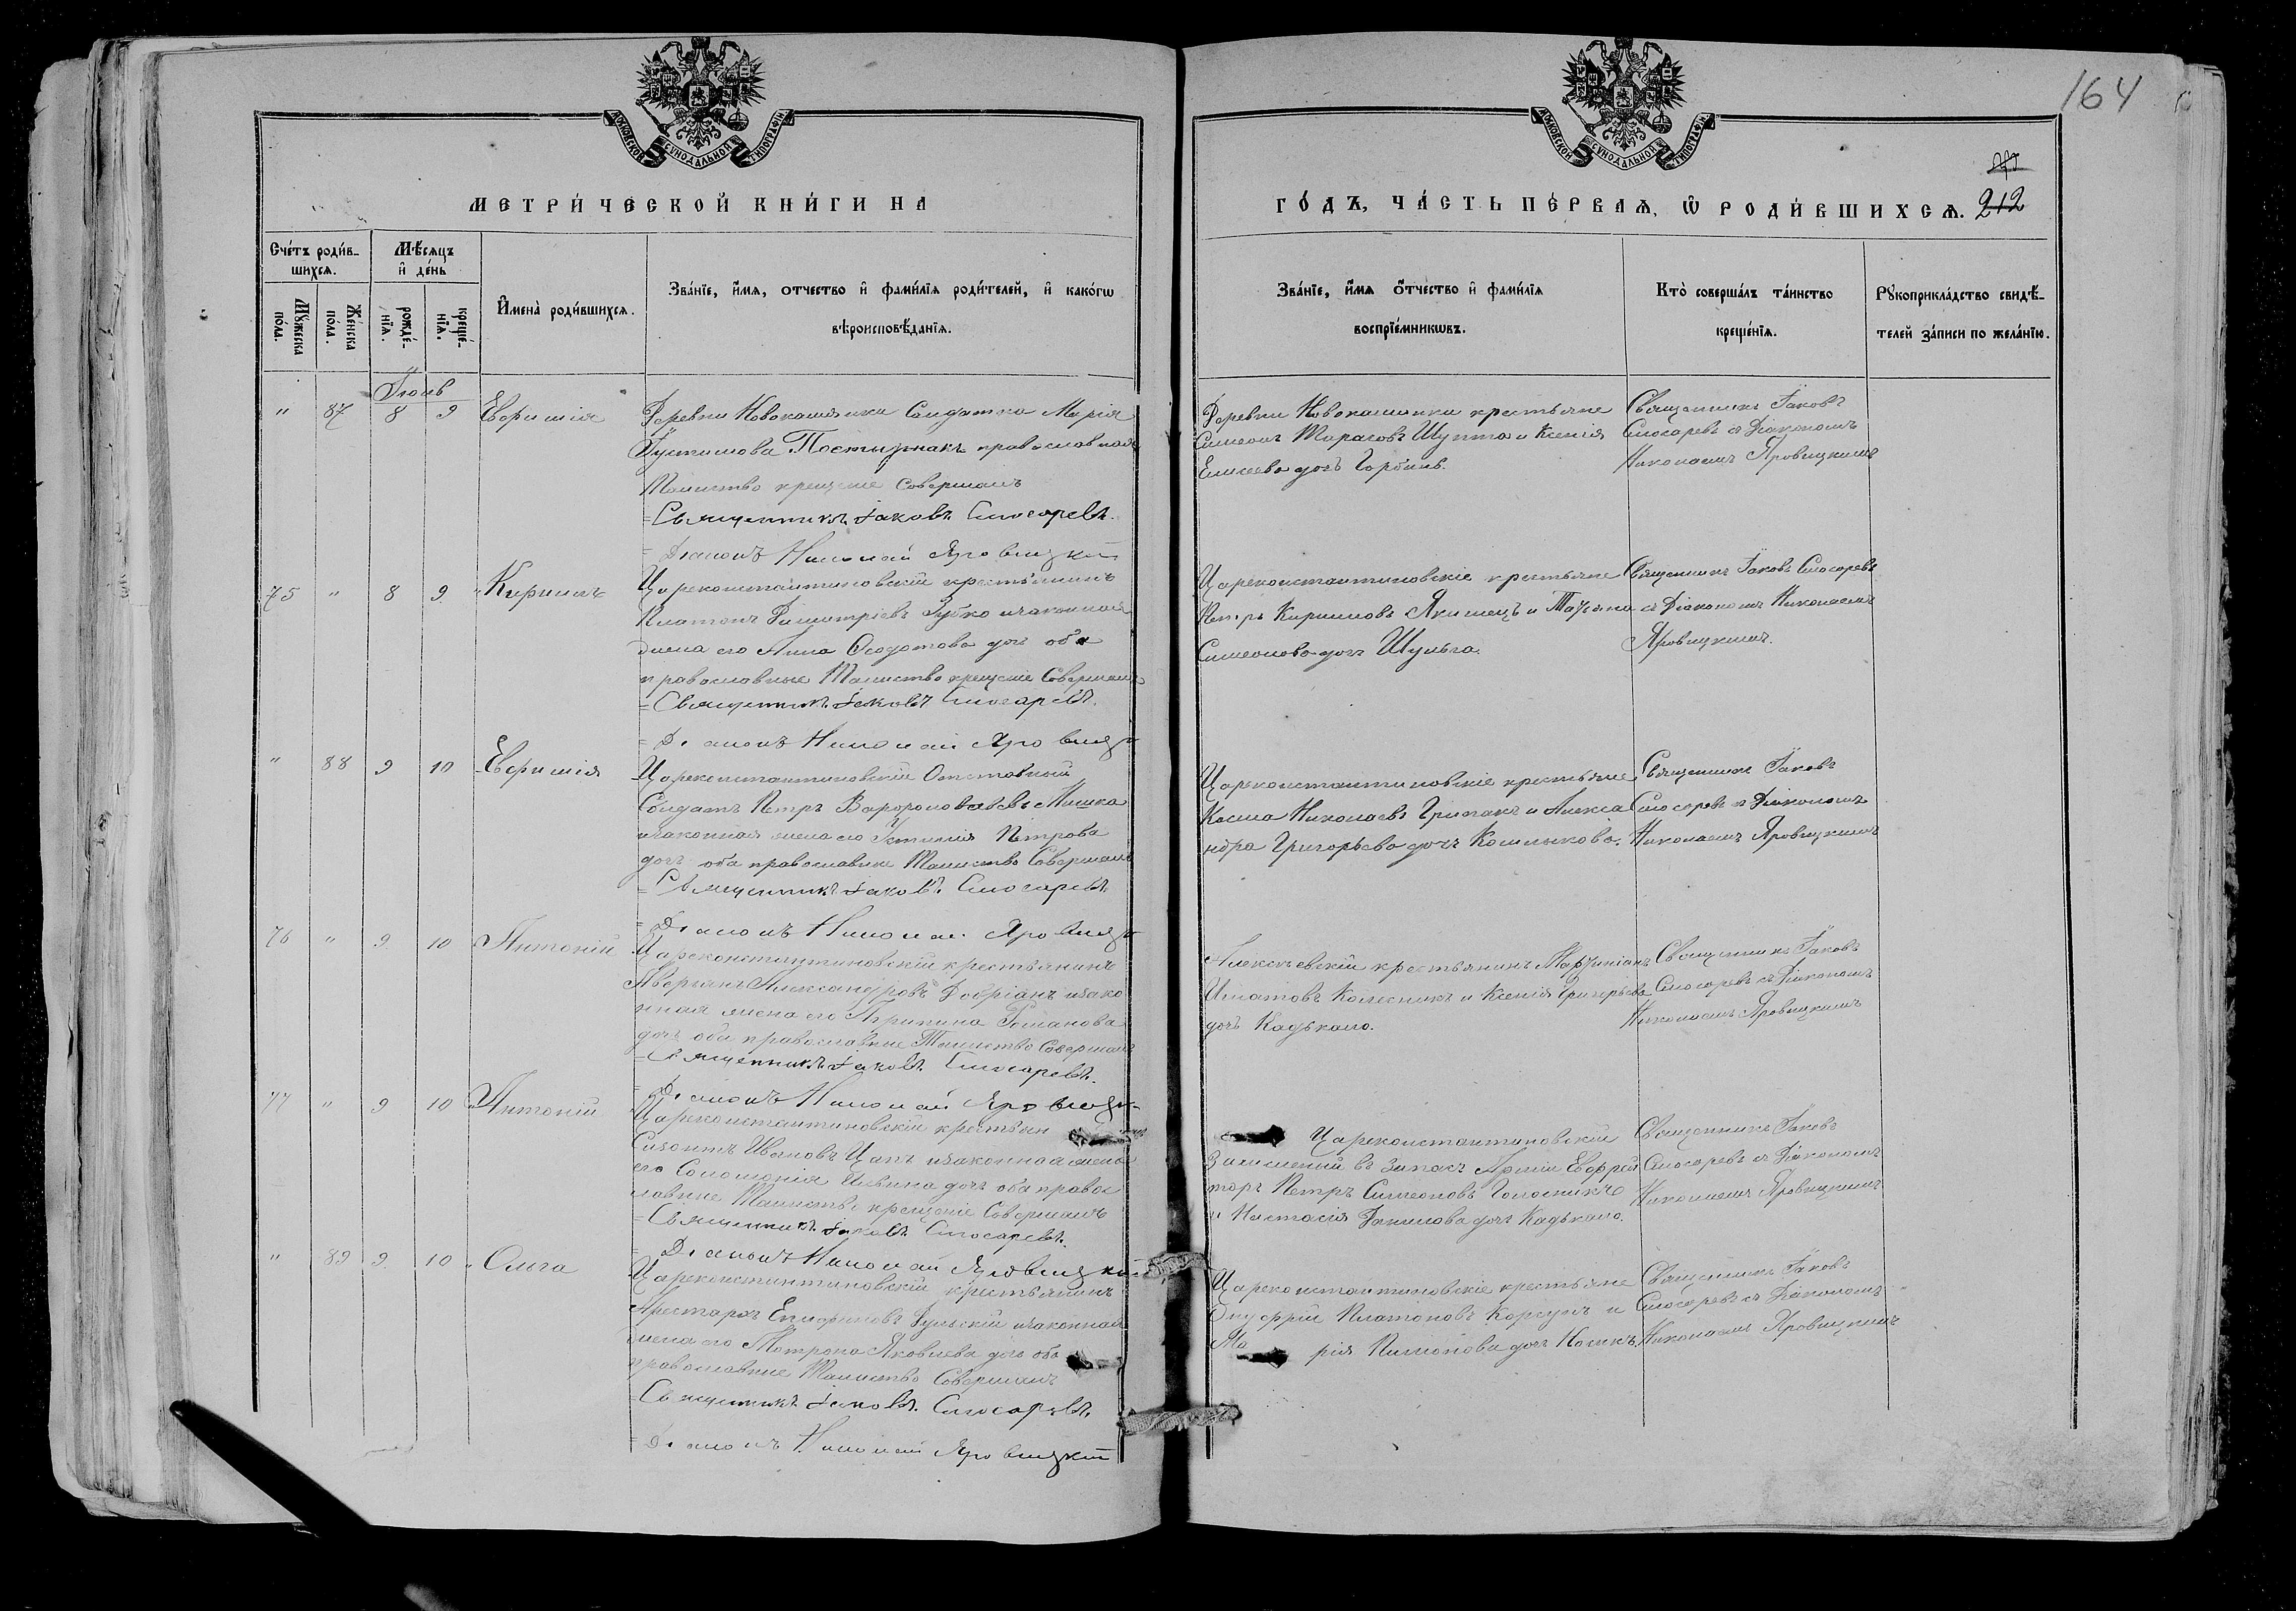 164
МОСКОВСКОЙ СѴНОДАЛЬНОЙ ТИПОГРАФІИ
МОСКОВСКОЙ СѴНОДАЛЬНОЙ ТИПОГРАФІИ
МЕТРИ́ЧЕСКОЙ КНИ́ГИ НА
ГО́ДЪ, ЧА́СТЬ ПЕ́РВАѦ, Ѡ РОДИ́ВШИХСѦ. 212
Сче́тъ роди́в-
шихсѧ.
Мꙋ́жеска по́ла.
Же́нска по́ла.
Мѣ́сѧцъ
и де́нь
рожде́-нїѧ.
креще́-нїѧ.
Имена̀ роди́вшихсѧ.
Зва́нїе, и́мѧ, о́тчество и фами́лїѧ роди́телей, и како́гѡ
вѣроисповѣ́данїѧ.
Зва́нїе, и́мѧ о́тчество и фами́лїѧ
воспрїе́мникѡвъ.
Кто̀ соверша́лъ та́инство
креще́нїѧ.
Рꙋкоприкла́дство свидѣ́-
телей за́писи по жела́нїю.
Іюль
" 87 8 9 Евфимія
Деревни Новокашинки Солдатка Марія
Іустинова Постызнакъ православная
Таинство крещеніе Совершалъ
Священникъ Іаковъ Слюсаревъ.
Діаконъ Николай Яровицкій
Деревни Новокашинки крестьяне
Симеонъ Тарасовъ Шупта и Ксенія
Елисеева дочь Горбинъ.
Священникъ Іаковъ
Слюсаревъ съ Діакономъ
Николаемъ Яровицкимъ
75 " 8 9 Кириллъ
Цареконстантиновскій крестьянинъ
Платонъ Димитріевъ Зубко и законная
жена его Анна Ѳеодотова дочь оба
православные Таинство крещеніе Совершалъ
Священникъ Іаковъ Слюсаревъ.
Діаконъ Николай Яровицк
Цареконстантиновскіе крестьяне
Петръ Кирилловъ Якимецъ и Татьяна
Симеонова дочь Шульга.
Священникъ Іаковъ Слюсаревъ
съ Діакономъ Николаемъ
Яровицкимъ.
" 88 9 10 Евфимія
Цареконстантиновскій Отставный
Солдатъ Петръ Варѳоломѣевъ Мишка
и законная жена его Устинія Петрова
дочь оба православные Таинство Совершалъ
Священникъ Іаковъ Слюсаревъ
Діаконъ Николай Яровицк
Цареконстантиновскіе крестьяне
Косма Николаевъ Грипакъ и Алекса
ндра Григорьева дочь Кошлыкова.
Священникъ Іаковъ
Слюсаревъ съ Діакономъ
Николаемъ Яровицкимъ
76 " 9 10 Антоній
Цареконстантиновскій крестьянинъ
Аверіянъ Александровъ Добріанъ и зако
нная жена его Агрипина Романова
дочь оба православные Таинство Совершалъ
Священникъ Іаковъ Слюсаревъ.
Діаконъ Николай Яровицк
Алексѣевскій крестьянинъ Мартиніанъ
Игнатовъ Колесникъ и Ксенія Григорьева
дочь Кадькало.
Священникъ Іаковъ
Слюсаревъ съ Діакономъ
Николаемъ Яровицкимъ
77 " 9 10 Антоній
Цареконстантиновскій крестьян
Сизонтъ Ивановъ Цапъ и законная жена
его Соломонія Ильина дочь оба право
славные Таинство крещеніе Совершалъ
Священникъ Іаковъ Слюсаревъ.
Діаконъ Николай Яровицкій
Цареконстантиновскій
Запасный въ Запасъ Арміи Ефрей
торъ Петръ Симеоновъ Голосникъ
и Настасія Данилова дочь Кадькало.
Священникъ Іаковъ
Слюсаревъ съ Діакономъ
Николаемъ Яровицкимъ
" 89 9 10 Ольга
Цареконстантиновскій крестьянинъ
Аристархъ Епифановъ Дульскій и законная
жена его Матрона Яковлева дочь оба
православные Таинство Совершалъ
Священникъ Іаковъ Слюсаревъ.
Діаконъ Николай Яровицкій
Цареконстантиновскіе крестьяне
Онуфрій Платоновъ Корсунъ и
Ма рія Филионова дочь Носикъ
Священникъ Іаковъ
Слюсаревъ съ Діакономъ
Николаемъ Яровицкимъ